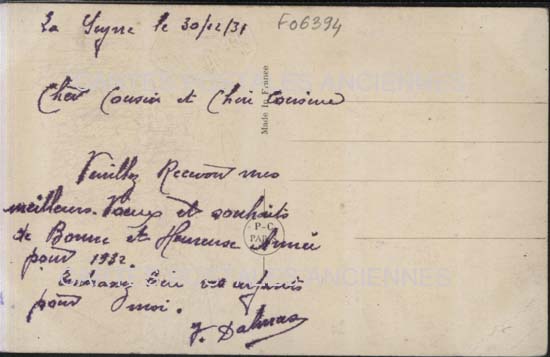 La Seyne le 30/12/31
F06394
CARTES POSTALES ANCIENNES
Cher Cousin et Chère Cousine
Made in France
Veuillez Recevoir mes
meilleurs Vœux et souhaits
de Bonne et Heureuse Année
pour 1932.
Embrassez bien vos enfants
pour moi.
P-C
PARIS
CARTES POSTALES ANCIENNES
J. Dalmas